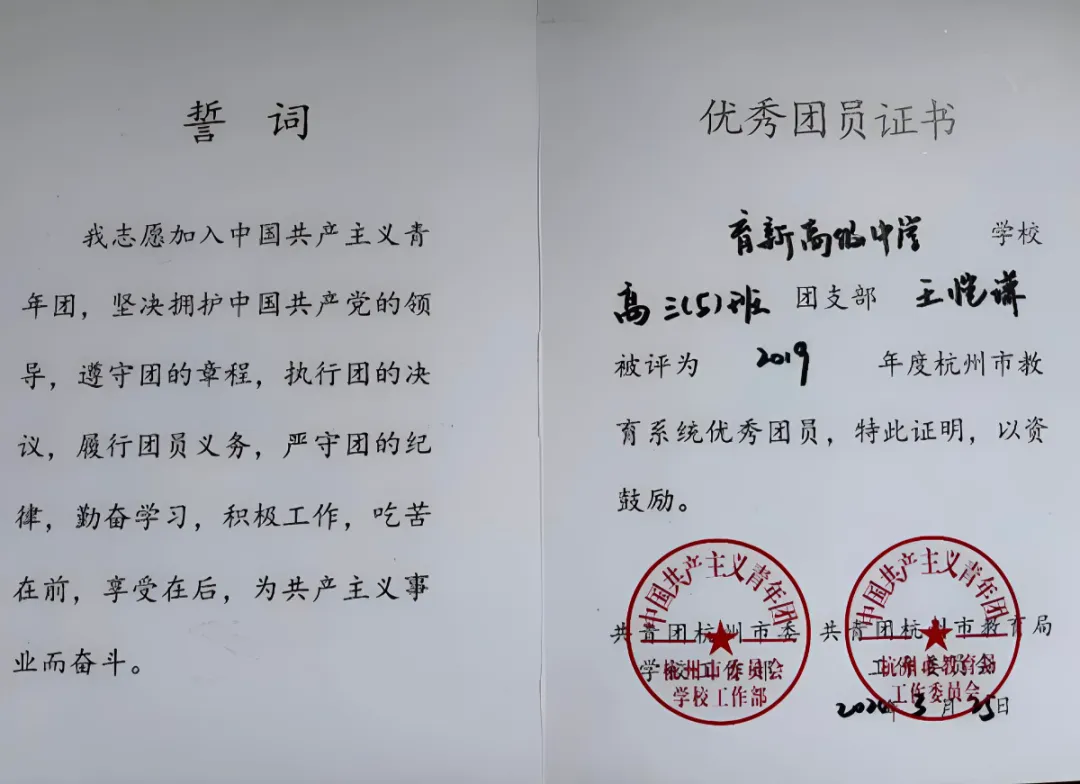 誓 词
我志愿加入中国共产主义青
年团，坚决拥护中国共产党的领
导，遵守团的章程，执行团的决
议，履行团员义务，严守团的纪
律，勤奋学习，积极工作，吃苦
在前，享受在后，为共产主义事
业而奋斗。
优秀团员证书
育新高级中学 学校
高三(5)班 团支部 王恺
被评为 2019 年度杭州市教
育系统优秀团员，特此证明，以资
鼓励。
共青团杭州市委
学校工作部
共青团杭州市教育局
工作委员会
2020年3月25日
中国共产主义青年团
杭州市委员会
学校工作部
中国共产主义青年团
杭州市教育局
工作委员会